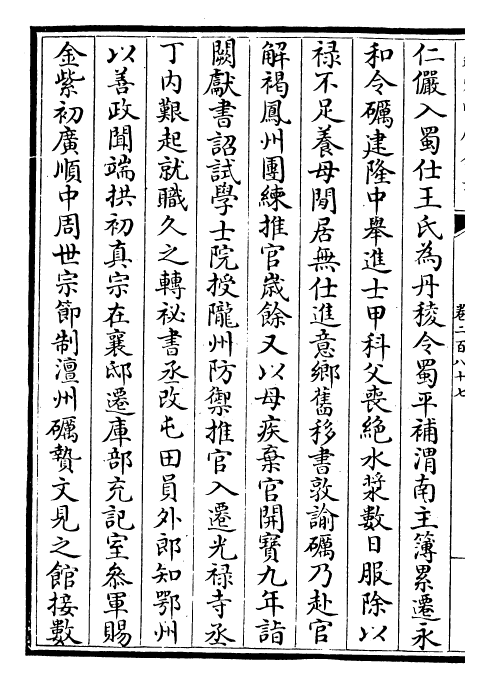 卷二百八十七
仁儼入蜀仕王氏為丹稜令蜀平補渭南主簿累遷永
和令礪建隆中舉進士甲科父喪絶水漿數日服除以
禄不足養母閒居無仕進意鄉舊移書敦諭礪乃赴官
解褐鳳州團練推官嵗餘又以母疾棄官開寶九年詣
闕獻書詔試學士院授隴州防禦推官入遷光禄寺丞
丁内艱起就職久之轉祕書丞改屯田員外郎知鄂州
以善政聞端拱初真宗在襄邸遷庫部充記室叅軍賜
金紫初廣順中周世宗節制澶州礪贄文見之館接數